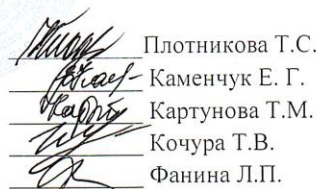 Плотникова Т.С.
Каменчук Е. Г.
Картунова Т.М.
Кочура Т.В.
Фанина Л.П.